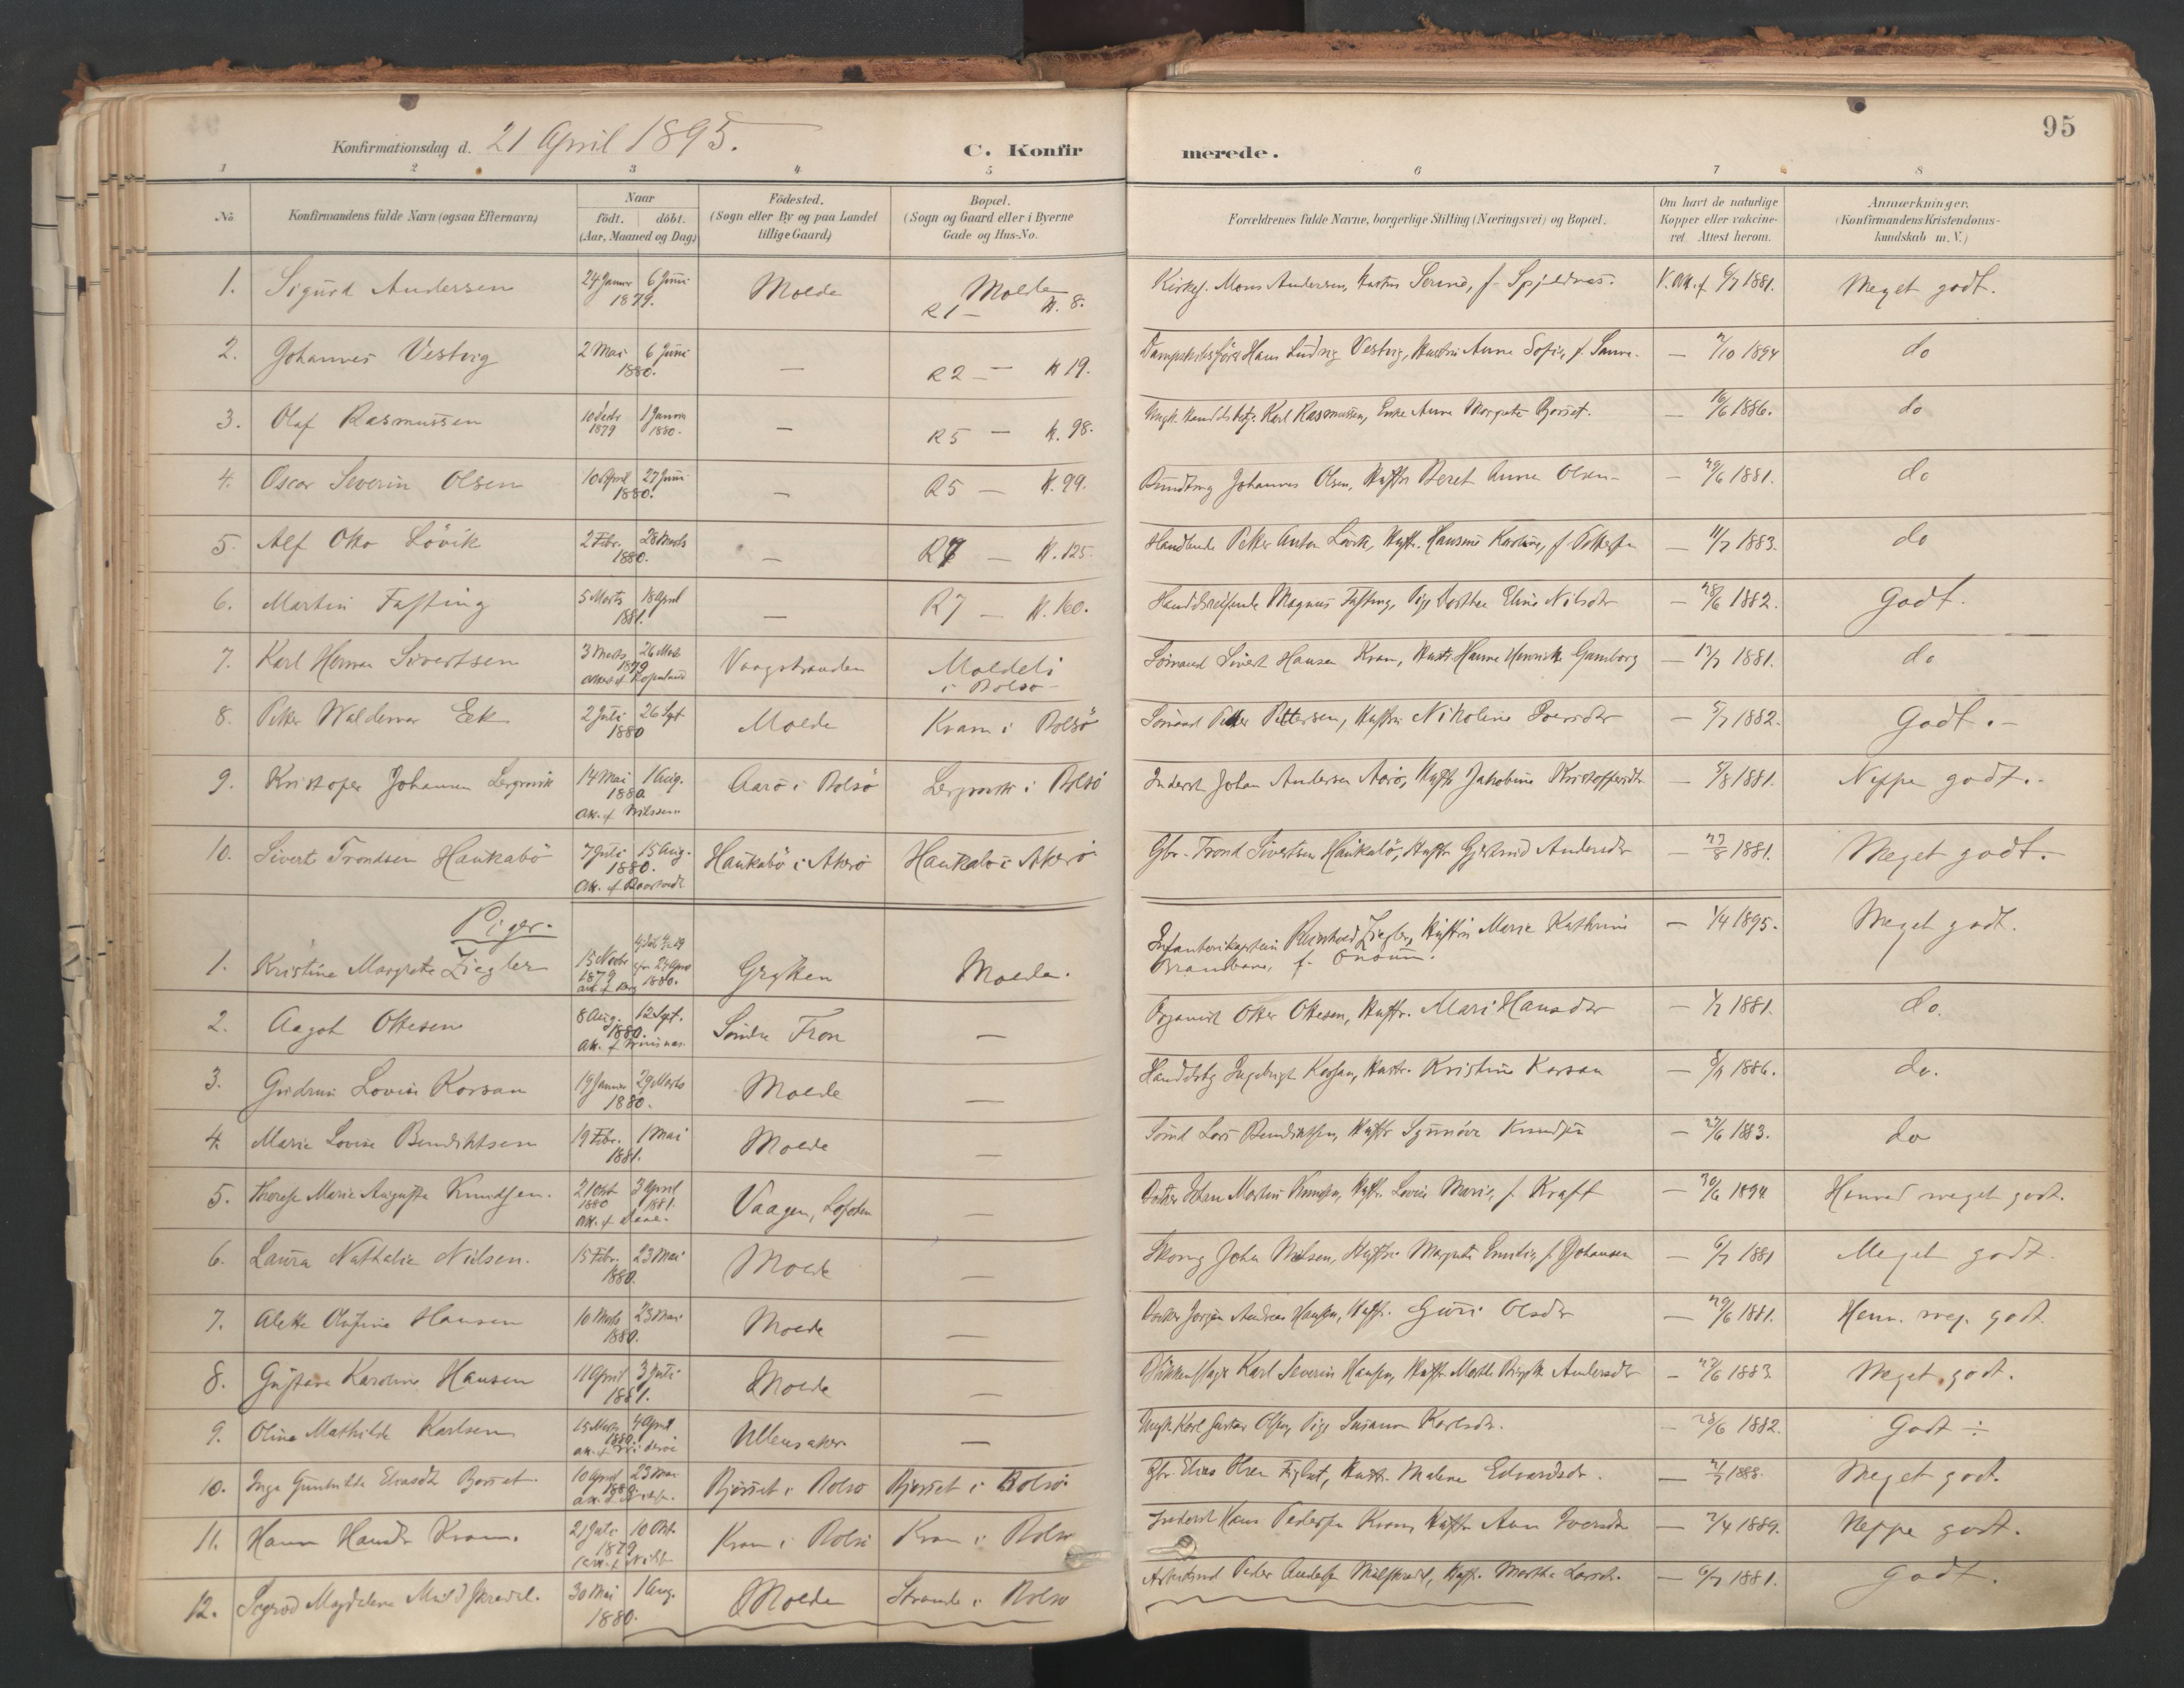 95
Konfirmationsdag d. 21 April 1895.
C. Konfirmerede.
1 2 3 4 5 6 7 8
No
Konfirmandens fulde Navn (ogsaa Efternavn)
Naar
födt. döbt.
(Aar, Maaned og Dag)
Födested.
(Sogn eller By og paa Landet
tillige Gaard)
Bopæl.
(Sogn og Gaard eller i Byerne
Gade og Hus-No.
Forældrenes fulde Navne, borgerlige Stilling (Næringsvei) og Bopæl.
Om havt de naturlige
Kopper eller vakcine-
ret. Attest herom.
Anmærkninger.
(Konfirmandens Kristendoms-
kundskab m. V.)
1. Sigurd Andersen 24 Januar 6 Juni 1879. Molde Molde R 1 — N. 8. Mons Andersen, Hustru f. Spjeldnæs. 6/7 1881. Meget godt.
2. Johannes Vestvig 2 Mai 6 Juni 1880. — R 2 — N 19. Hans Ludvig Vestvig, Hustru Anne Sofie, f. — 1894 do
3. Olaf Rasmussen 10 Decbr 1879 1 Januar 1880. — R 5 — N. 98. Karl Rasmussen, Enke Anne Margrete Bjørset. — 16/6 1886. do
4. Oscar Severin Olsen 10 April 27 Juni 1880. — R 5 — N. 99. Johannes Olsen, Hustr. Beret Anna Olsen — 29/6 1881. do
5. Alf Otto Lövik 2 Febr. 28 Marts 1880. — R 7 — N. 125. Handlende Petter Anton Lövik, Hustr. Hansine Karoline, f. — 11/7 1883. do
6. Martin Fasting 5 Marts 18 April 1881. — R 7 — N. 160. Handelsreisende Magnus Fasting, Pige Dorthea Eline Nilsdtr — 28/6 1882. Godt.
7. Karl Herman Sivertsen 3 Marts 26 Marts 1879 Vaagstranden Moldeli i Bolsö Sömand Sivert Hansen Kram, Hustr Hanne Henrikke Gamborg — 1881. do
8. Petter Waldemar Eek 2 Juli 26 Sept. 1880 Molde Kvam i Bolsö Sömand Petter Pettersen, Hustru Nikoline Iversdtr — 5/7 1882. Godt. —
9. Kristofer Johansen Lergrovik 14 Mai 1 Aug. 1880 Att. f. Nilssen Aarö i Bolsö Lergrovik i Bolsö Inderst Johan Andersen Aarö, Hustr Jakobine Kristoffersdtr — 5/8 1881. Neppe godt. —
10. Sivert Trondsen Haukabö 7 Juli 15 Aug. 1880. Haukabö i Akerö Haukabö i Akerö Gbr. Trond Sivertsen Haukabö, Hustr. Gjertrud Andersdtr — 27/8 1881. Meget godt.
Piger.
1. Kristine Margrete Ziegler 15 Novbr 1879 1880. Grytten Molde. Infanterikaptein Reinhold Ziegler, Hustru Marie Kathrine — 1/4 1895. Meget godt.
2. Aagot Ottesen 8 Aug. 12 Sept. 1880. Söndre Fron — Organist Otter Ottesen, Hustr. Mari Hansdtr — 1881. do.
3. Gudrun Lovise Korsan 19 Januar 29 Marts 1880. Molde — Ingebrigt Korsan, Hustr. Kristine Korsan — 1886. do.
4. Marie Lovise Bendiktsen 19 Febr. 1 Mai 1881. Molde — Sömd Lars Bendiktsen, Hustr Synnöve Knudsen — 27/6 1883. do
5. Therese Marie Augusta Knudsen. 21 Oktbr 1880 3 April 1881. Vaagen, Lofoten — Johan Martin Knudsen, Hustr. Lovise Marie, f. Kraft — 30/6 1894 Henved meget godt.
6. Laura Nathalie Nielsen. 15 Febr. 23 Mai 1880. Molde — John Nielsen, Hustru Margrete Emilie, f. Johansen — 6/7 1881 Meget godt
7. Alette Olufine Hansen 10 Marts 23 Mai 1880. Molde — Jørgen Andreas Hansen, Hustr. Guri Olsdtr — 29/6 1881. Henv. meg. godt
8. Gustava Karoline Hansen 11 April 3 Juli 1881. Molde — Karl Severin Hansen, Hustr Marthe Birgitte Andersdtr — 27/6 1883. Meget godt.
9. Oline Mathilde Karlsen 15 Marts 4 April 1880. Ullensaker. — Ungk. Karl Gustav Olsen, Pige Susanna Karlsdtr. — 28/6 1882. Godt ÷
10. Inga Gunhilda Eliasdtr Bjørset 10 April 23 Mai 1880. Bjørset i Bolsö Bjørset i Bolsö Gbr Elias Olsen, Hustr. Malene Edvardsdtr. — 1888. Meget godt.
11. Hanna Hansdtr Kvam. 21 Juli 10 Okt. 1879 Kvam i Bolsö Kvam i Bolsö Inderst Hans Pedersen Kvam, Hustr. Ane Iversdtr — 2/4 1889. Neppe godt.
12. Magdalene 30 Mai 1 Aug. 1880. Molde Strande i Bolsö Peder Andersen, Hustr. Marthe Larsdtr. — 6/7 1881. Godt.